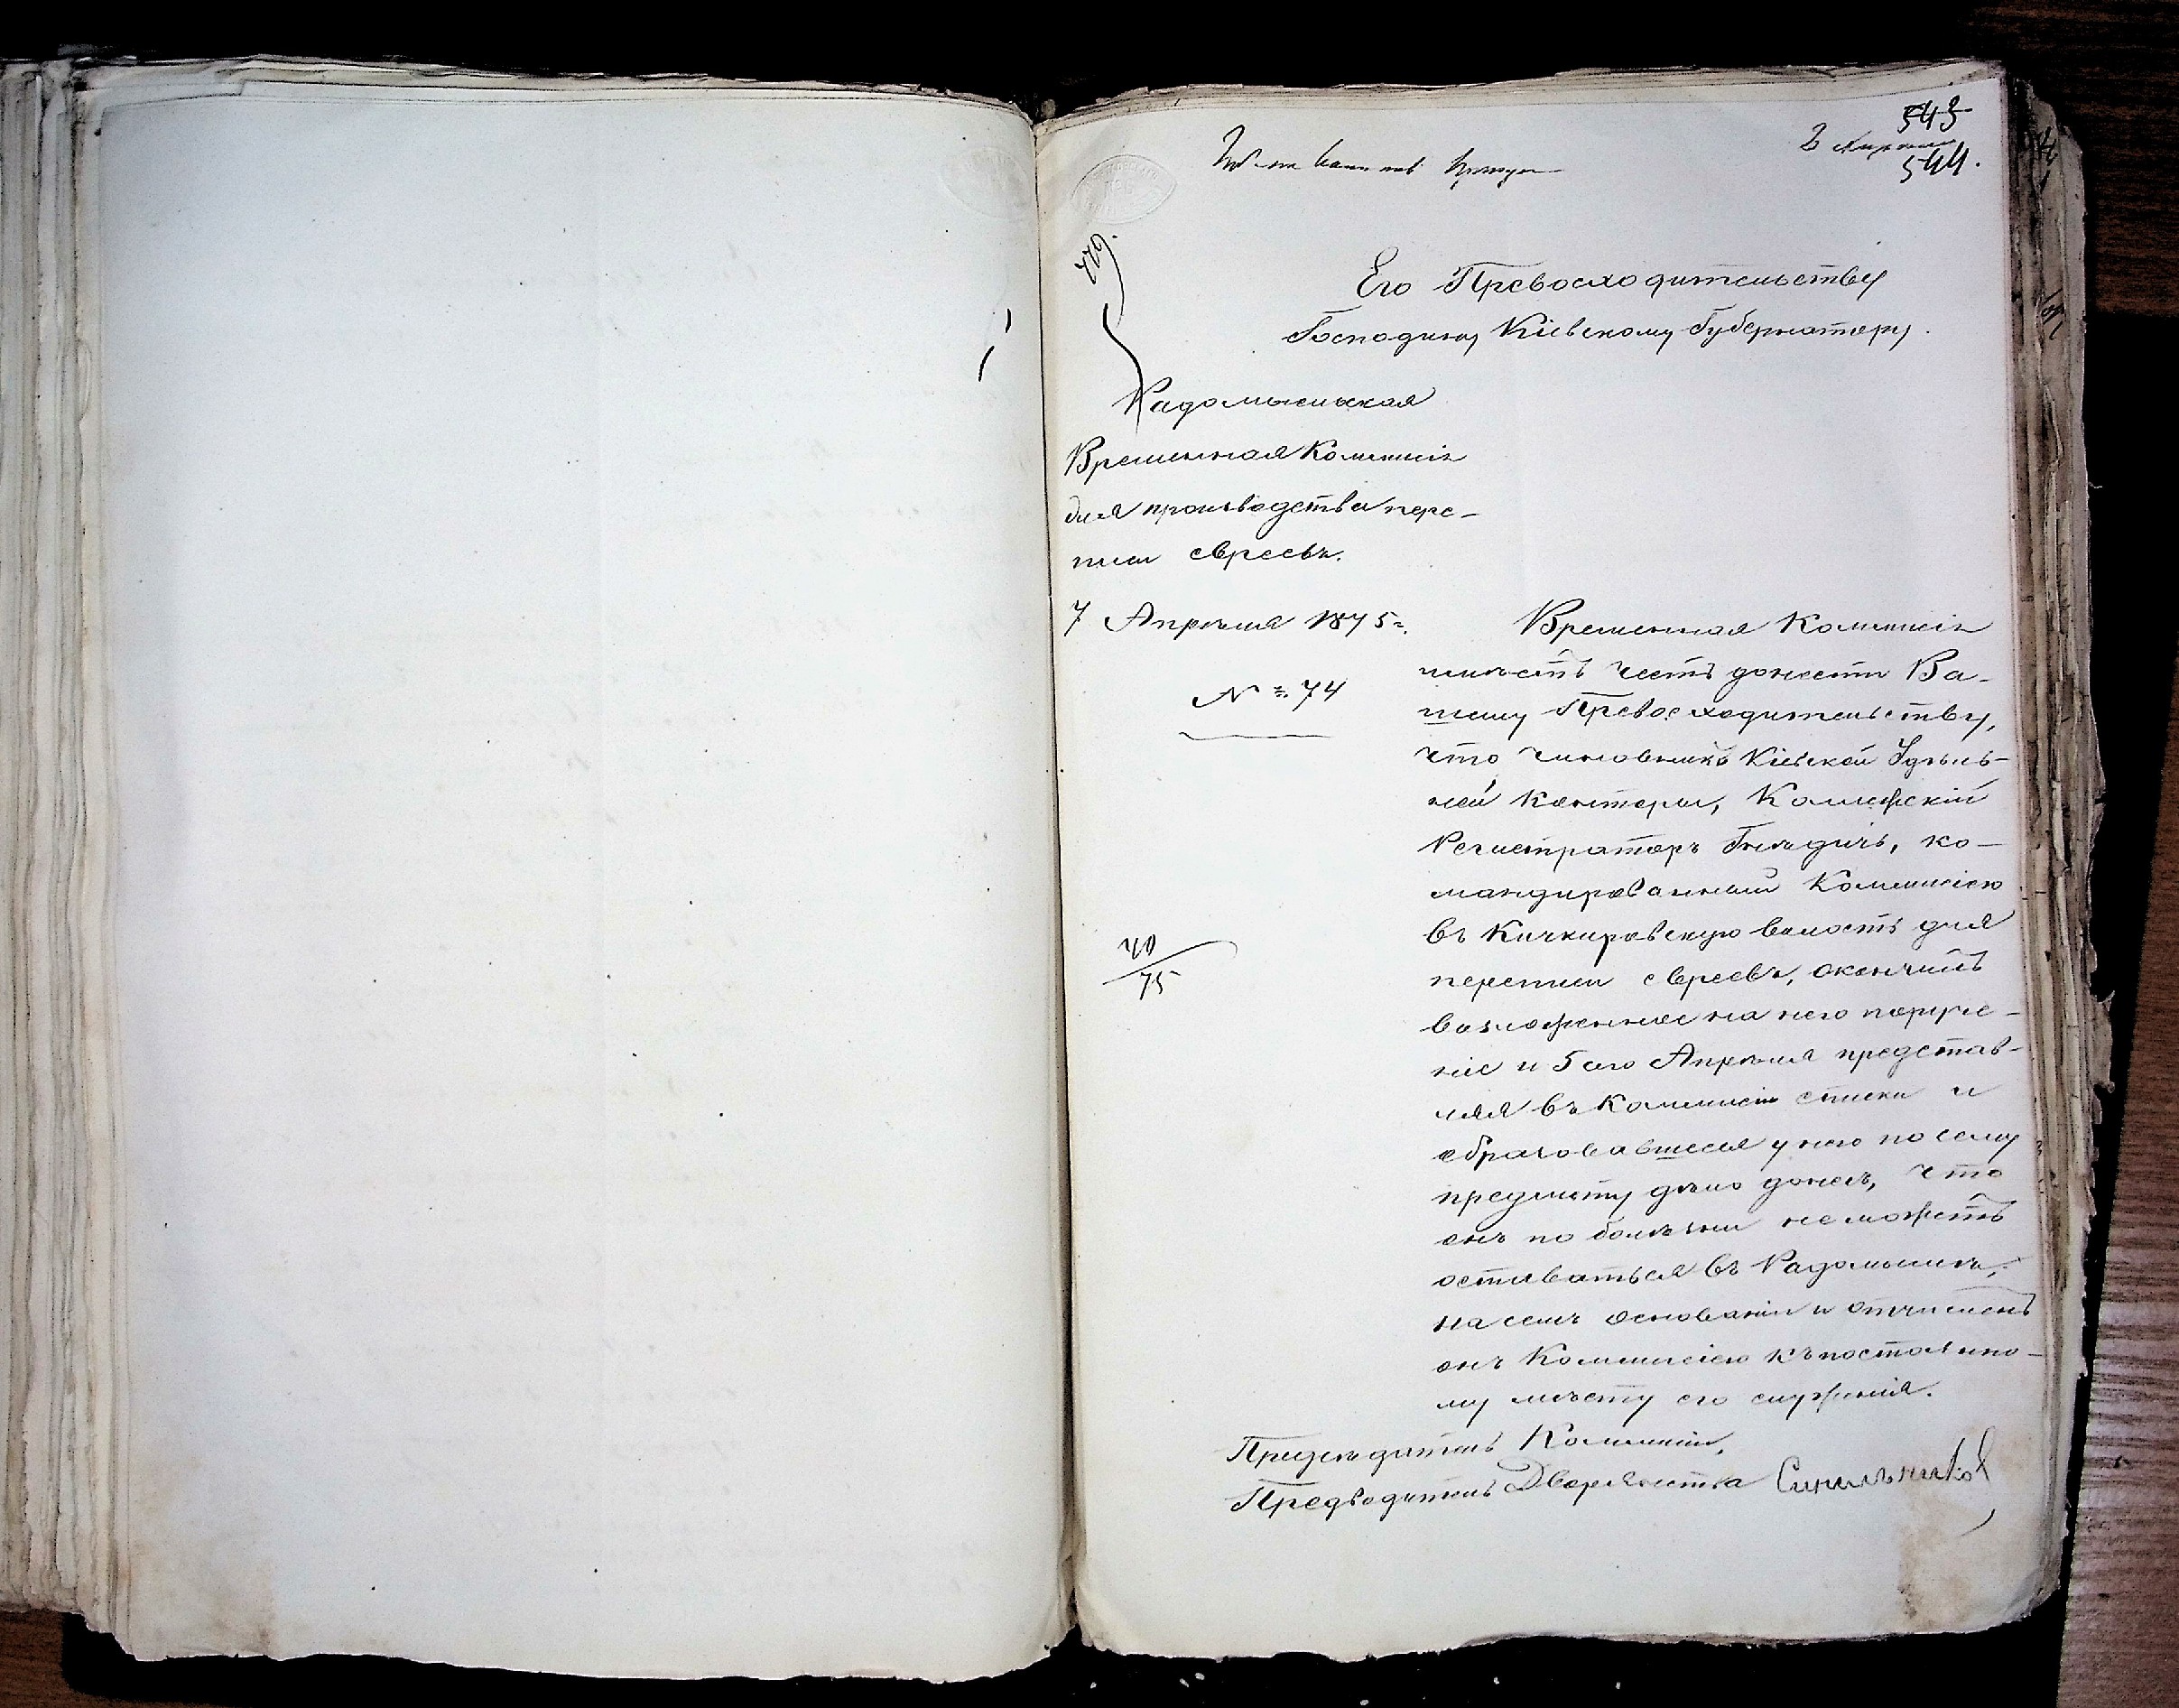 543
544.
779.
Его Превосходительству
Господину Кіевскому Губернатору.
Радомысльская
Временная Коммисія
для производства пере-
писи евреевъ.
7 Апрѣля 1875 г.
№ 74
40/75
Временная Коммисія
имѣетъ честь донести Ва-
шему Превосходительству,
что чиновникъ Кіевской Удѣль-
ной Конторы, Коллежскій
Регистраторъ Гнѣдичъ, ко-
мандированный Коммисіею
въ Кичкировскую волость для
переписи евреевъ, окончилъ
возложенное на него поруче-
ніе и 5 сего Апрѣля представ-
ляя въ Коммисію списки и
образовавшееся у него по сему
предмету дѣло донесъ, что
онъ по болѣзни не можетъ
оставаться въ Радомыслѣ;
на семъ основаніи и отчисленъ
онъ Коммисіею къ постоянно-
му мѣсту его служенія.
Предсѣдатель Коммисіи,
Предводитель Дворянства Синельников